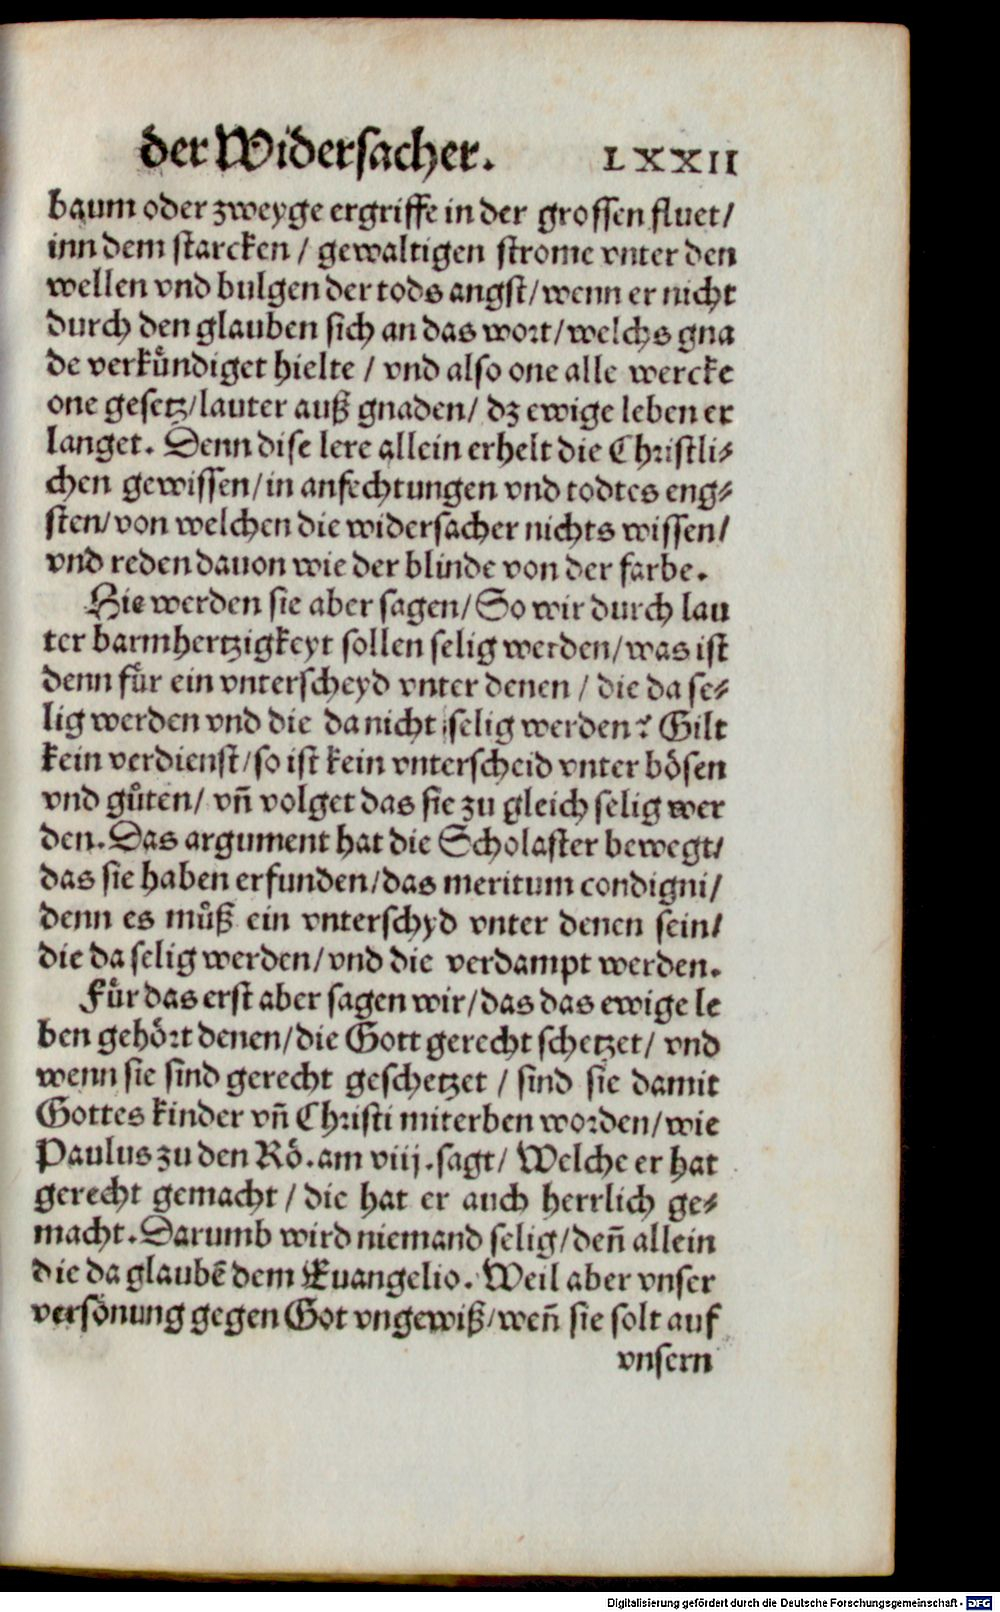 der Widersacher. LXXII
baum oder zweyge ergriffe in der grossen fluet/
inn dem starcken / gewaltigen strome vnter den
wellen vnd bulgen der tods angst/wenn er nicht
durch den glauben sich an das wort/welchs gna
de verkündiget hielte / vnd also one alle wercke
one gesetz/lauter auß gnaden/ dz ewige leben er
langet. Denn dise lere allein erhelt die Christli⸗
chen gewissen/in anfechtungen vnd todtes eng⸗
sten/von welchen die widersacher nichts wissen/
vnd reden dauon wie der blinde von der farbe.
Hie werden sie aber sagen/So wir durch lau
ter barmhertzigkeyt sollen selig werden/was ist
denn für ein vnterscheyd vnter denen / die da se⸗
lig werden vnd die da nicht selig werden? Gilt
kein verdienst/so ist kein vnterscheid vnter bösen
vnd gůten/ vñ volget das sie zu gleich selig wer
den. Das argument hat die Scholaster bewegt/
das sie haben erfunden/das meritum condigni/
denn es můß ein vnterschyd vnter denen sein/
die da selig werden/vnd die verdampt werden.
Für das erst aber sagen wir/das das ewige le
ben gehört denen/die Gott gerecht schetzet/ vnd
wenn sie sind gerecht geschetzet / sind sie damit
Gottes kinder vñ Christi miterben worden/wie
Paulus zu den Rö. am viij. sagt/ Welche er hat
gerecht gemacht / die hat er auch herrlich ge⸗
macht. Darumb wird niemand selig/deñ allein
die da glaubē dem Euangelio. Weil aber vnser
versönung gegen Got vngewiß/weñ sie solt auf
vnsern
Digitalisierung gefördert durch die Deutsche Forschungsgemeinschaft - DFG